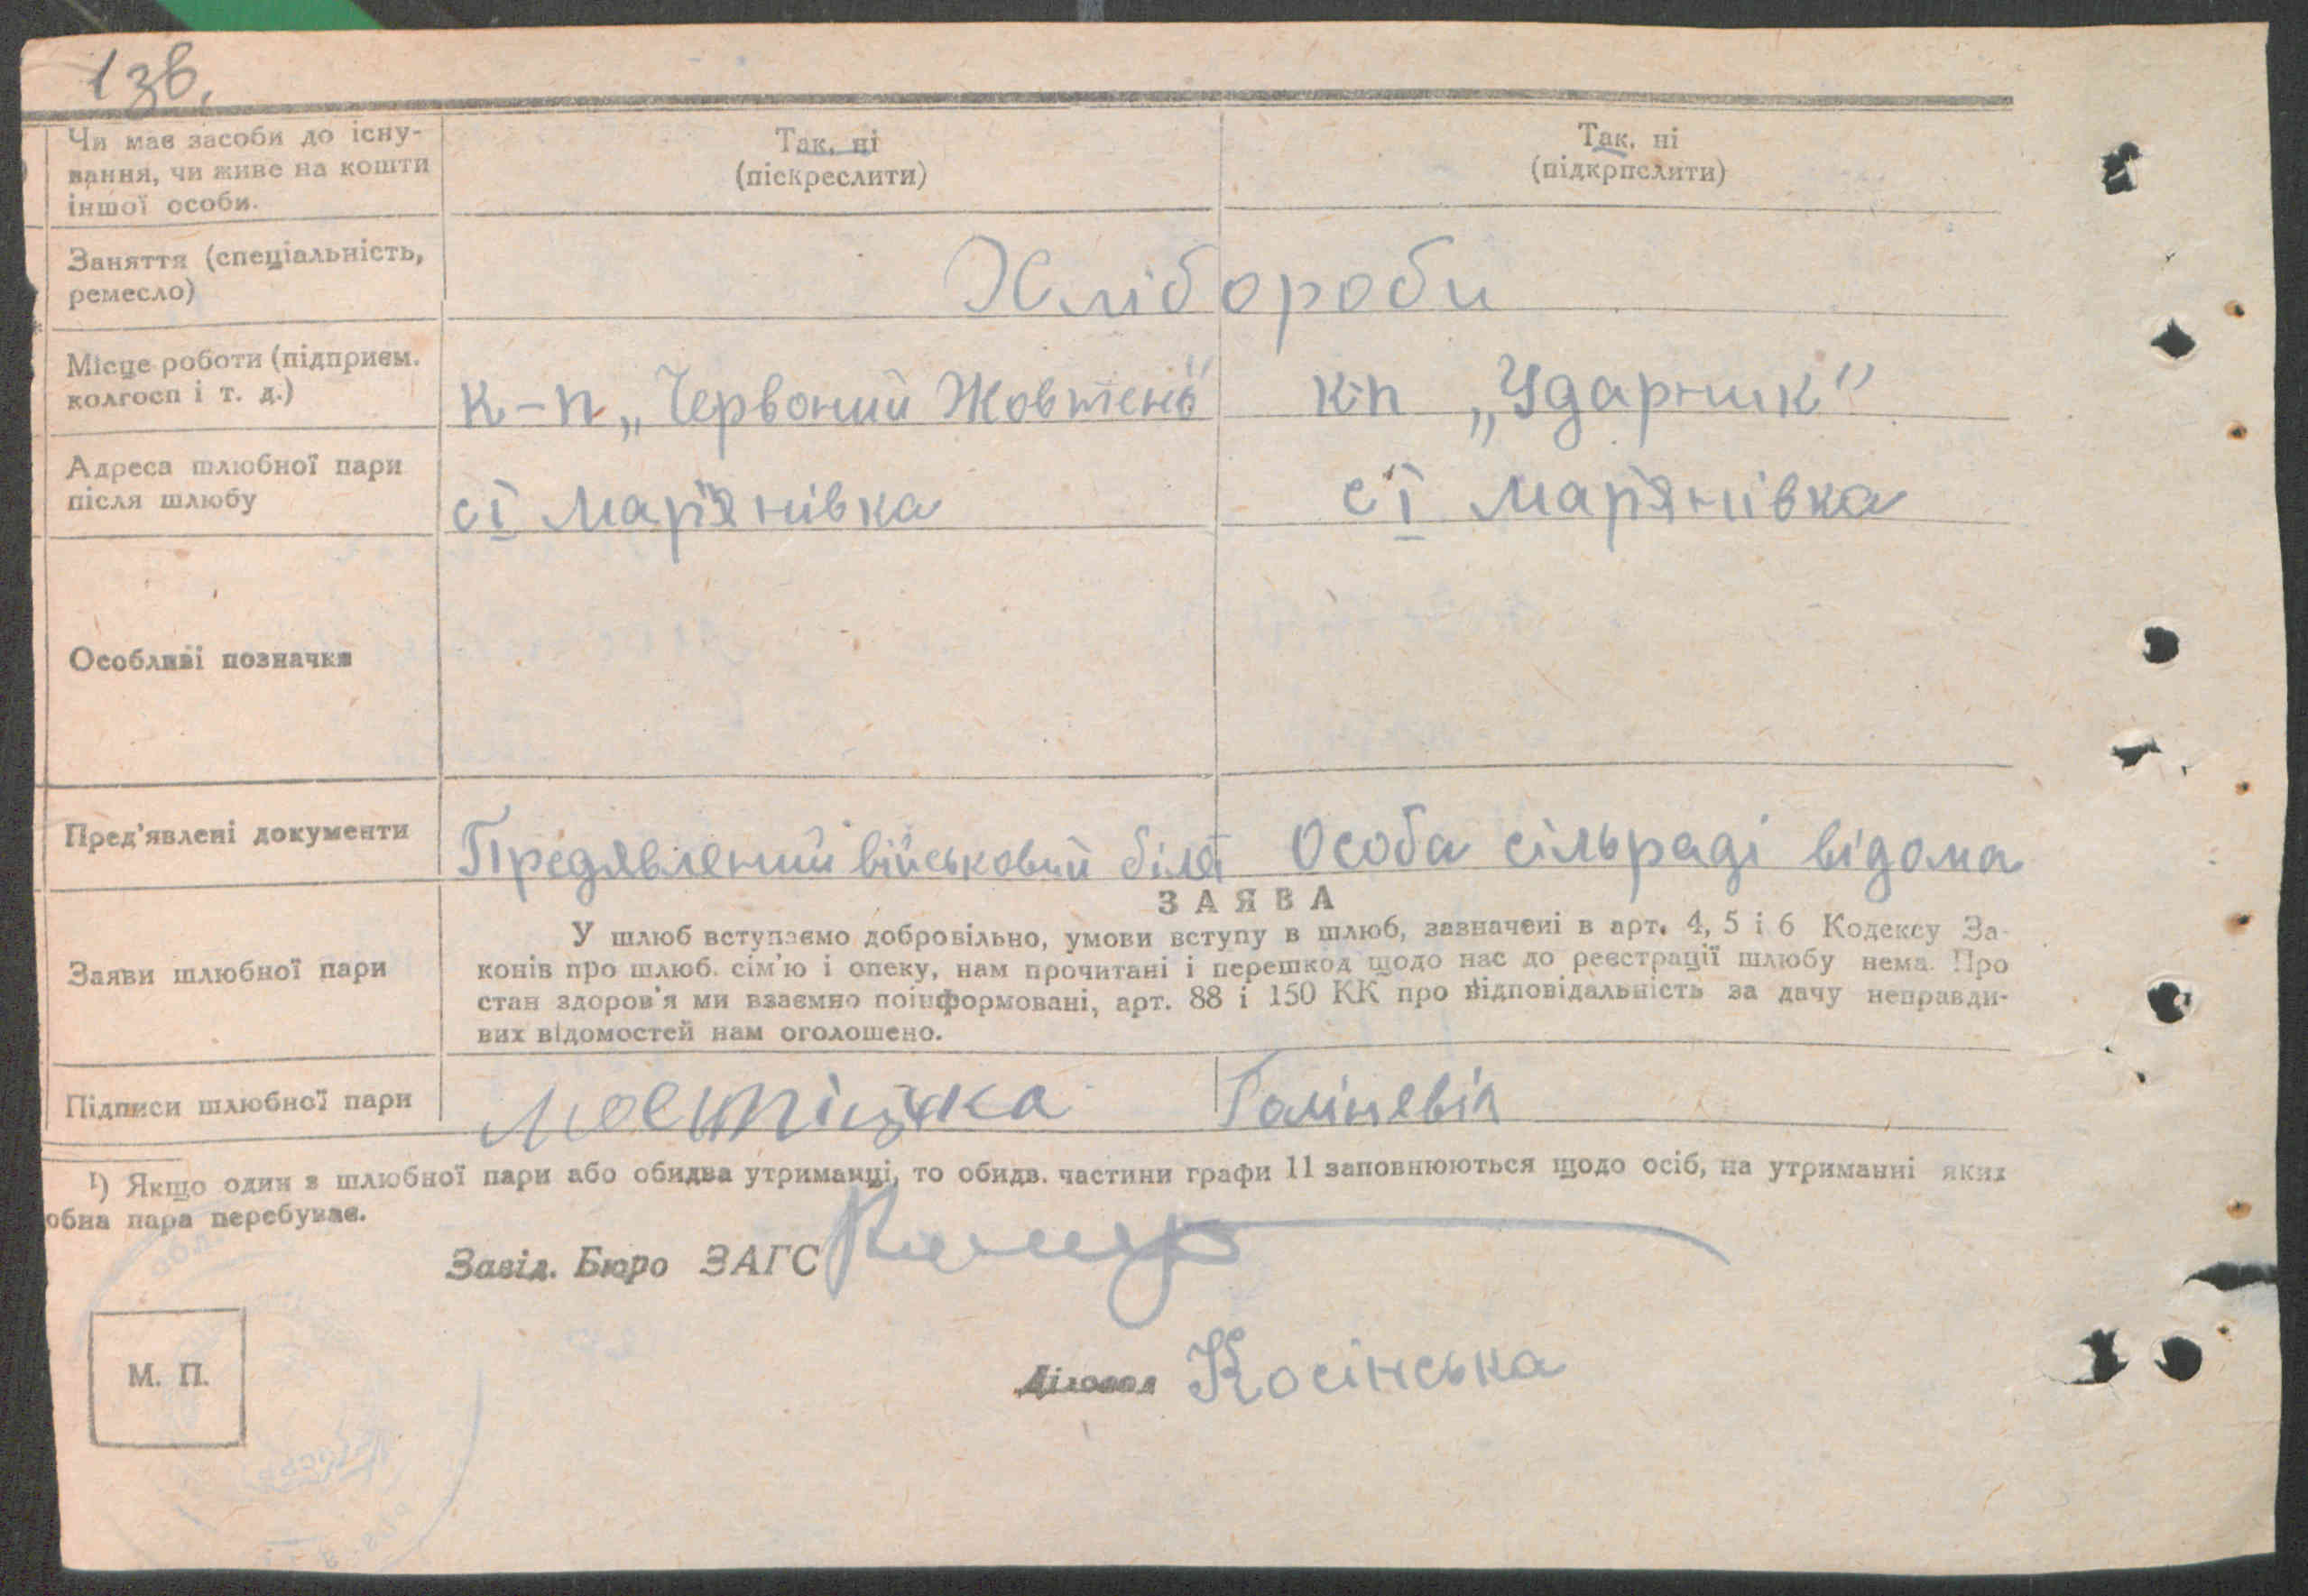 13в.
Чи має засоби до існу-
вання, чи живе на кошти
іншої особи.
Так, ні
(піскреслити)
Так, ні
(підкрпслити)
Заняття (спеціальність,
ремесло)
Хлібороби
Місце роботи (підприєм.
колгосп і т. д.)
к-п „Червоний Жовтень"
к-п „Ударник"
Адреса шлюбної пари
після шлюбу
с І Мар'янівка
с І Мар'янівка
Особливі позначки
Пред'явлені документи
Предявлений військовий білет
Особа сільраді відома
Заяви шлюбної пари
ЗАЯВА
У шлюб вступаємо добровільно, умови вступу в шлюб, зазначені в арт. 4, 5 і 6 Кодексу За-
конів про шлюб. сім'ю і опеку, нам прочитані і перешкод щодо нас до реєстрації шлюбу нема. Про
стан здоров'я ми взаємно поінформовані, арт. 88 і 150 КК про відповідальність за дачу неправди-
вих відомостей нам оголошено.
Підписи шлюбної пари
¹) Якщо один з шлюбної пари або обидва утриманці, то обидв. частини графи 11 заповнюються щодо осіб, на утриманні яких
обна пара перебуває.
Завід. Бюро ЗАГС
М. П.
Діловод Косінська